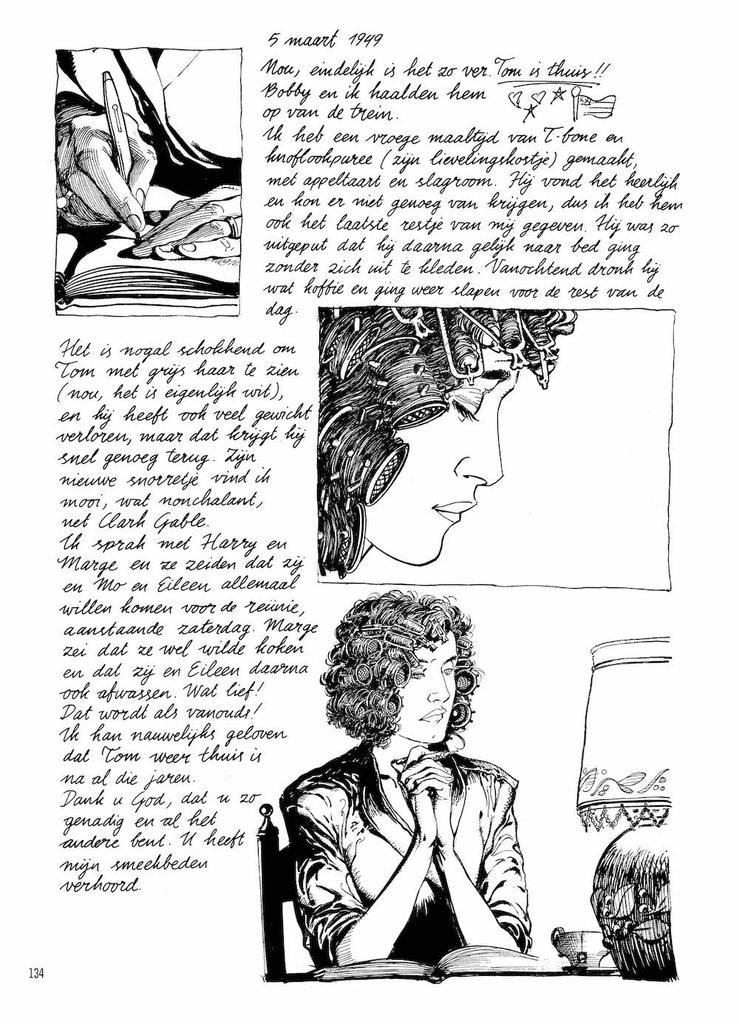 5 maart 1949
Nou, eindelijk is het zo ver. Tom is thuis!!
Bobby en ik haalden hem
op van de trein.
Ik heb een vroege maaltijd van T-bone en
knoflookpuree (zijn lievelingskostje) gemaakt,
met appeltaart en slagroom. Hij vond het heerlijk
en kon er niet genoeg van krijgen, dus ik heb hem
ook het laatste restje van mij gegeven. Hij was zo
uitgeput dat hij daarna gelijk naar bed ging
zonder zich uit te kleden. Vanochtend dronk hij
wat koffie en ging weer slapen voor de rest van de
dag.
Het is nogal schokkend om
Tom met grijs haar te zien
(nou, het is eigenlijk wit),
en hij heeft ook veel gewicht
verloren, maar dat krijgt hij
snel genoeg terug. Zijn
nieuwe snorretje vind ik
mooi, wat nonchalant,
net Clark Gable.
Ik sprak met Harry en
Marge en ze zeiden dat zij
en Mo en Eileen allemaal
willen komen voor de reünie,
aanstaande zaterdag. Marge
zei dat ze wel wilde koken
en dat zij en Eileen daarna
ook afwassen. Wat lief!
Dat wordt als vanouds!
Ik kan nauwelijks geloven
dat Tom weer thuis is
na al die jaren.
Dank u God, dat u zo
genadig en al het
andere bent. U heeft
mijn smeekbeden
verhoord.
134